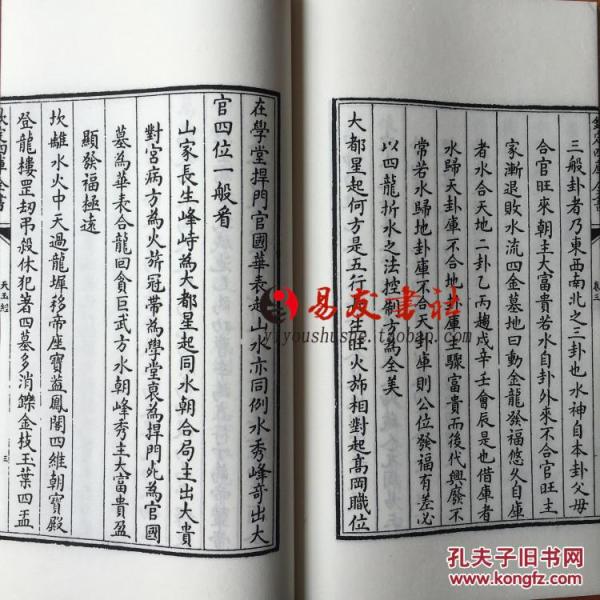 欽定四庫全書
卷三
三般卦者乃東西南北之三卦也水神自本卦父母
合官旺來朝主大富貴若水自卦外來不合官旺主
家漸退敗水流四金墓地曰動金龍發福悠久自庫
者水合天地二卦乙丙趨戌辛壬會辰是也借庫者
水歸天卦庫不合地卦庫主驟富貴而後代興廢不
常若水歸地卦庫不合天庫則公位發福有差必
以四龍折水之法控制方為全美
大都星起何方是五行長生旺火斾相對起高岡職位
在學堂捍門官國華表起山水亦同例水秀峰奇出大
官四位一般看
山家長生峰峙為大都星起同水朝合局主出大貴
對宮病方為火斾冠帶為學堂衰為捍門此為官國
墓為華表合龍回貪巨武方水朝峰秀主大富貴盈
顯發福極遠
坎離水火中天過龍墀移帝座寶蓋鳳閣四維朝寶殿
登龍樓罡刼吊殺休犯著四墓多消鑠金枝玉葉四孟
欽定四庫全書
天玉經
三
易友書社
yiyoushushe.taobao.com
孔夫子旧书网
www.kongfz.com